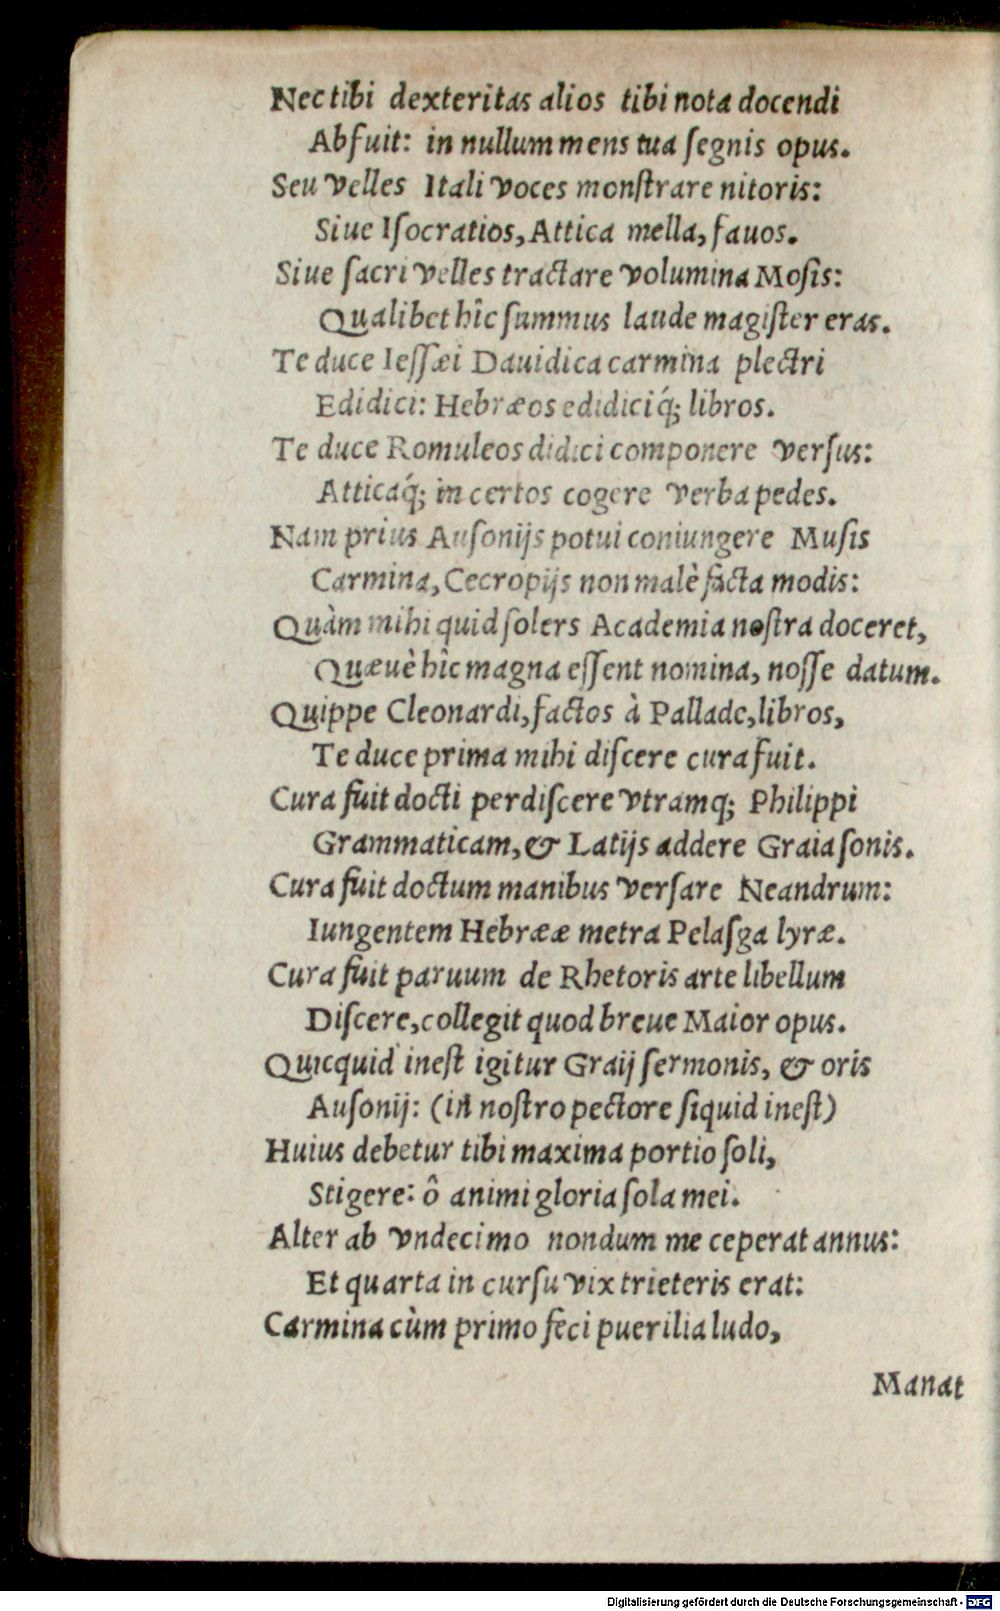 Nec tibi dexteritas alios tibi nota docendi
Abfuit: in nullum mens tua ſegnis opus.
Seu velles Itali voces monſtrare nitoris:
Siue Iſocratios, Attica mella, fauos.
Siue ſacri velles tractare volumina Moſis:
Qualibet hîc ſummus laude magiſter eras.
Te duce Ieſſæi Dauidica carmina plectri
Edidici: Hebræos edidiciq́; libros.
Te duce Romuleos didici componere verſus:
Atticaq́; in certos cogere verba pedes.
Nam prius Auſonijs potui coniungere Muſis
Carmina, Cecropijs non malè facta modis:
Quàm mihi quid ſolers Academia noſtra doceret,
Quæuè hîc magna eſſent nomina, noſſe datum.
Quippe Cleonardi, factos à Pallade, libros,
Te duce prima mihi diſcere cura fuit.
Cura fuit docti perdiſcere vtramq; Philippi
Grammaticam, & Latijs addere Graia ſonis.
Cura fuit doctum manibus verſare Neandrum:
Iungentem Hebrææ metra Pelaſga lyræ.
Cura fuit paruum de Rhetoris arte libellum
Diſcere, collegit quod breue Maior opus.
Quicquid ineſt igitur Graij ſermonis, & oris
Auſonij: (in noſtro pectore ſiquid ineſt)
Huius debetur tibi maxima portio ſoli,
Stigere: ô animi gloria ſola mei.
Alter ab vndecimo nondum me ceperat annus:
Et quarta in curſu vix trieteris erat:
Carmina cùm primo feci puerilia ludo,
Manat
Digitalisierung gefördert durch die Deutsche Forschungsgemeinschaft - DFG